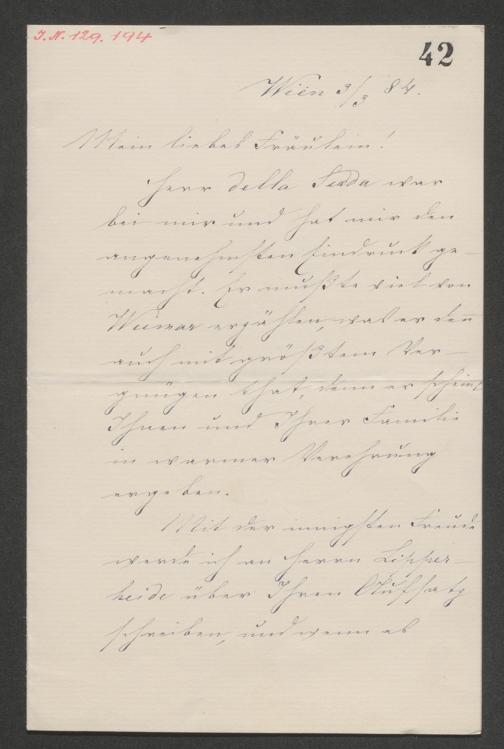 J.N. 129.194
42
Wien 3/3 84.
Mein liebes Fräulein!
Herr della Sudda war
bei mir und hat mir den
angenehmsten Eindruck ge-
macht. Er mußte viel von
Weimar erzählen, was er denn
auch mit größtem Ver-
gnügen that, denn er scheint
Ihnen und Ihrer Familie
in warmer Verehrung
ergeben.
Mit der innigsten Freude
werde ich an Herrn Lipper-
heide über Ihren Aufsatz
schreiben, und wenn es